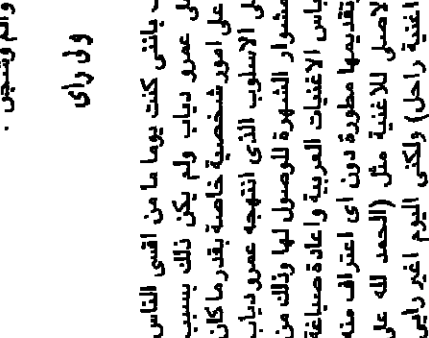 والم وشجن .
ولى راى
بانني كنت يوما ما من اقسى الناس
على عمرو دياب ولم يكن ذلك بسبب
على امور شخصية خاصة بقدر ما كان
الاسلوب الذى انتهجه عمرو دياب
مشوار الشهرة للوصول لها وذلك من
الاغنيات العربية واعادة صياغة
تقديمها مطورة دون اى اعتراف منه
الاصلى للاغنية مثل (الحمد لله على
اغنية راحل) ولكنى اليوم اغير رايى